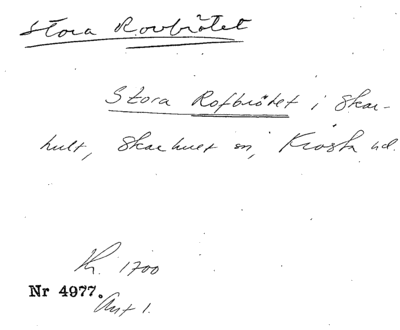 Stora Rovbrötet
Stora Rofbrötet i Skar-
hult, Skarhult sn,
K. 1700
Nr 4977.
Ant 1.